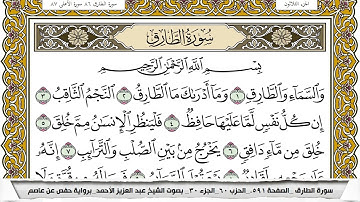 الجزء الثلاثون
سورة الطارق ٨٦ سورة الأعلى ٨٧
سُورَةُ الطَّارِقِ
بِسْمِ اللَّهِ الرَّحْمَٰنِ الرَّحِيمِ
وَالسَّمَاءِ وَالطَّارِقِ ١ وَمَا أَدْرَاكَ مَا الطَّارِقُ ٢ النَّجْمُ الثَّاقِبُ ٣
إِن كُلُّ نَفْسٍ لَّمَّا عَلَيْهَا حَافِظٌ ٤ فَلْيَنظُرِ الْإِنسَانُ مِمَّ خُلِقَ ٥
خُلِقَ مِن مَّاءٍ دَافِقٍ ٦ يَخْرُجُ مِن بَيْنِ الصُّلْبِ وَالتَّرَائِبِ ٧ إِنَّهُ
سورة الطارق _الصفحة ٥٩١_ الحزب ٦٠_ الجزء ٣٠_ بصوت الشيخ عبد العزيز الأحمد_ برواية حفص عن عاصم